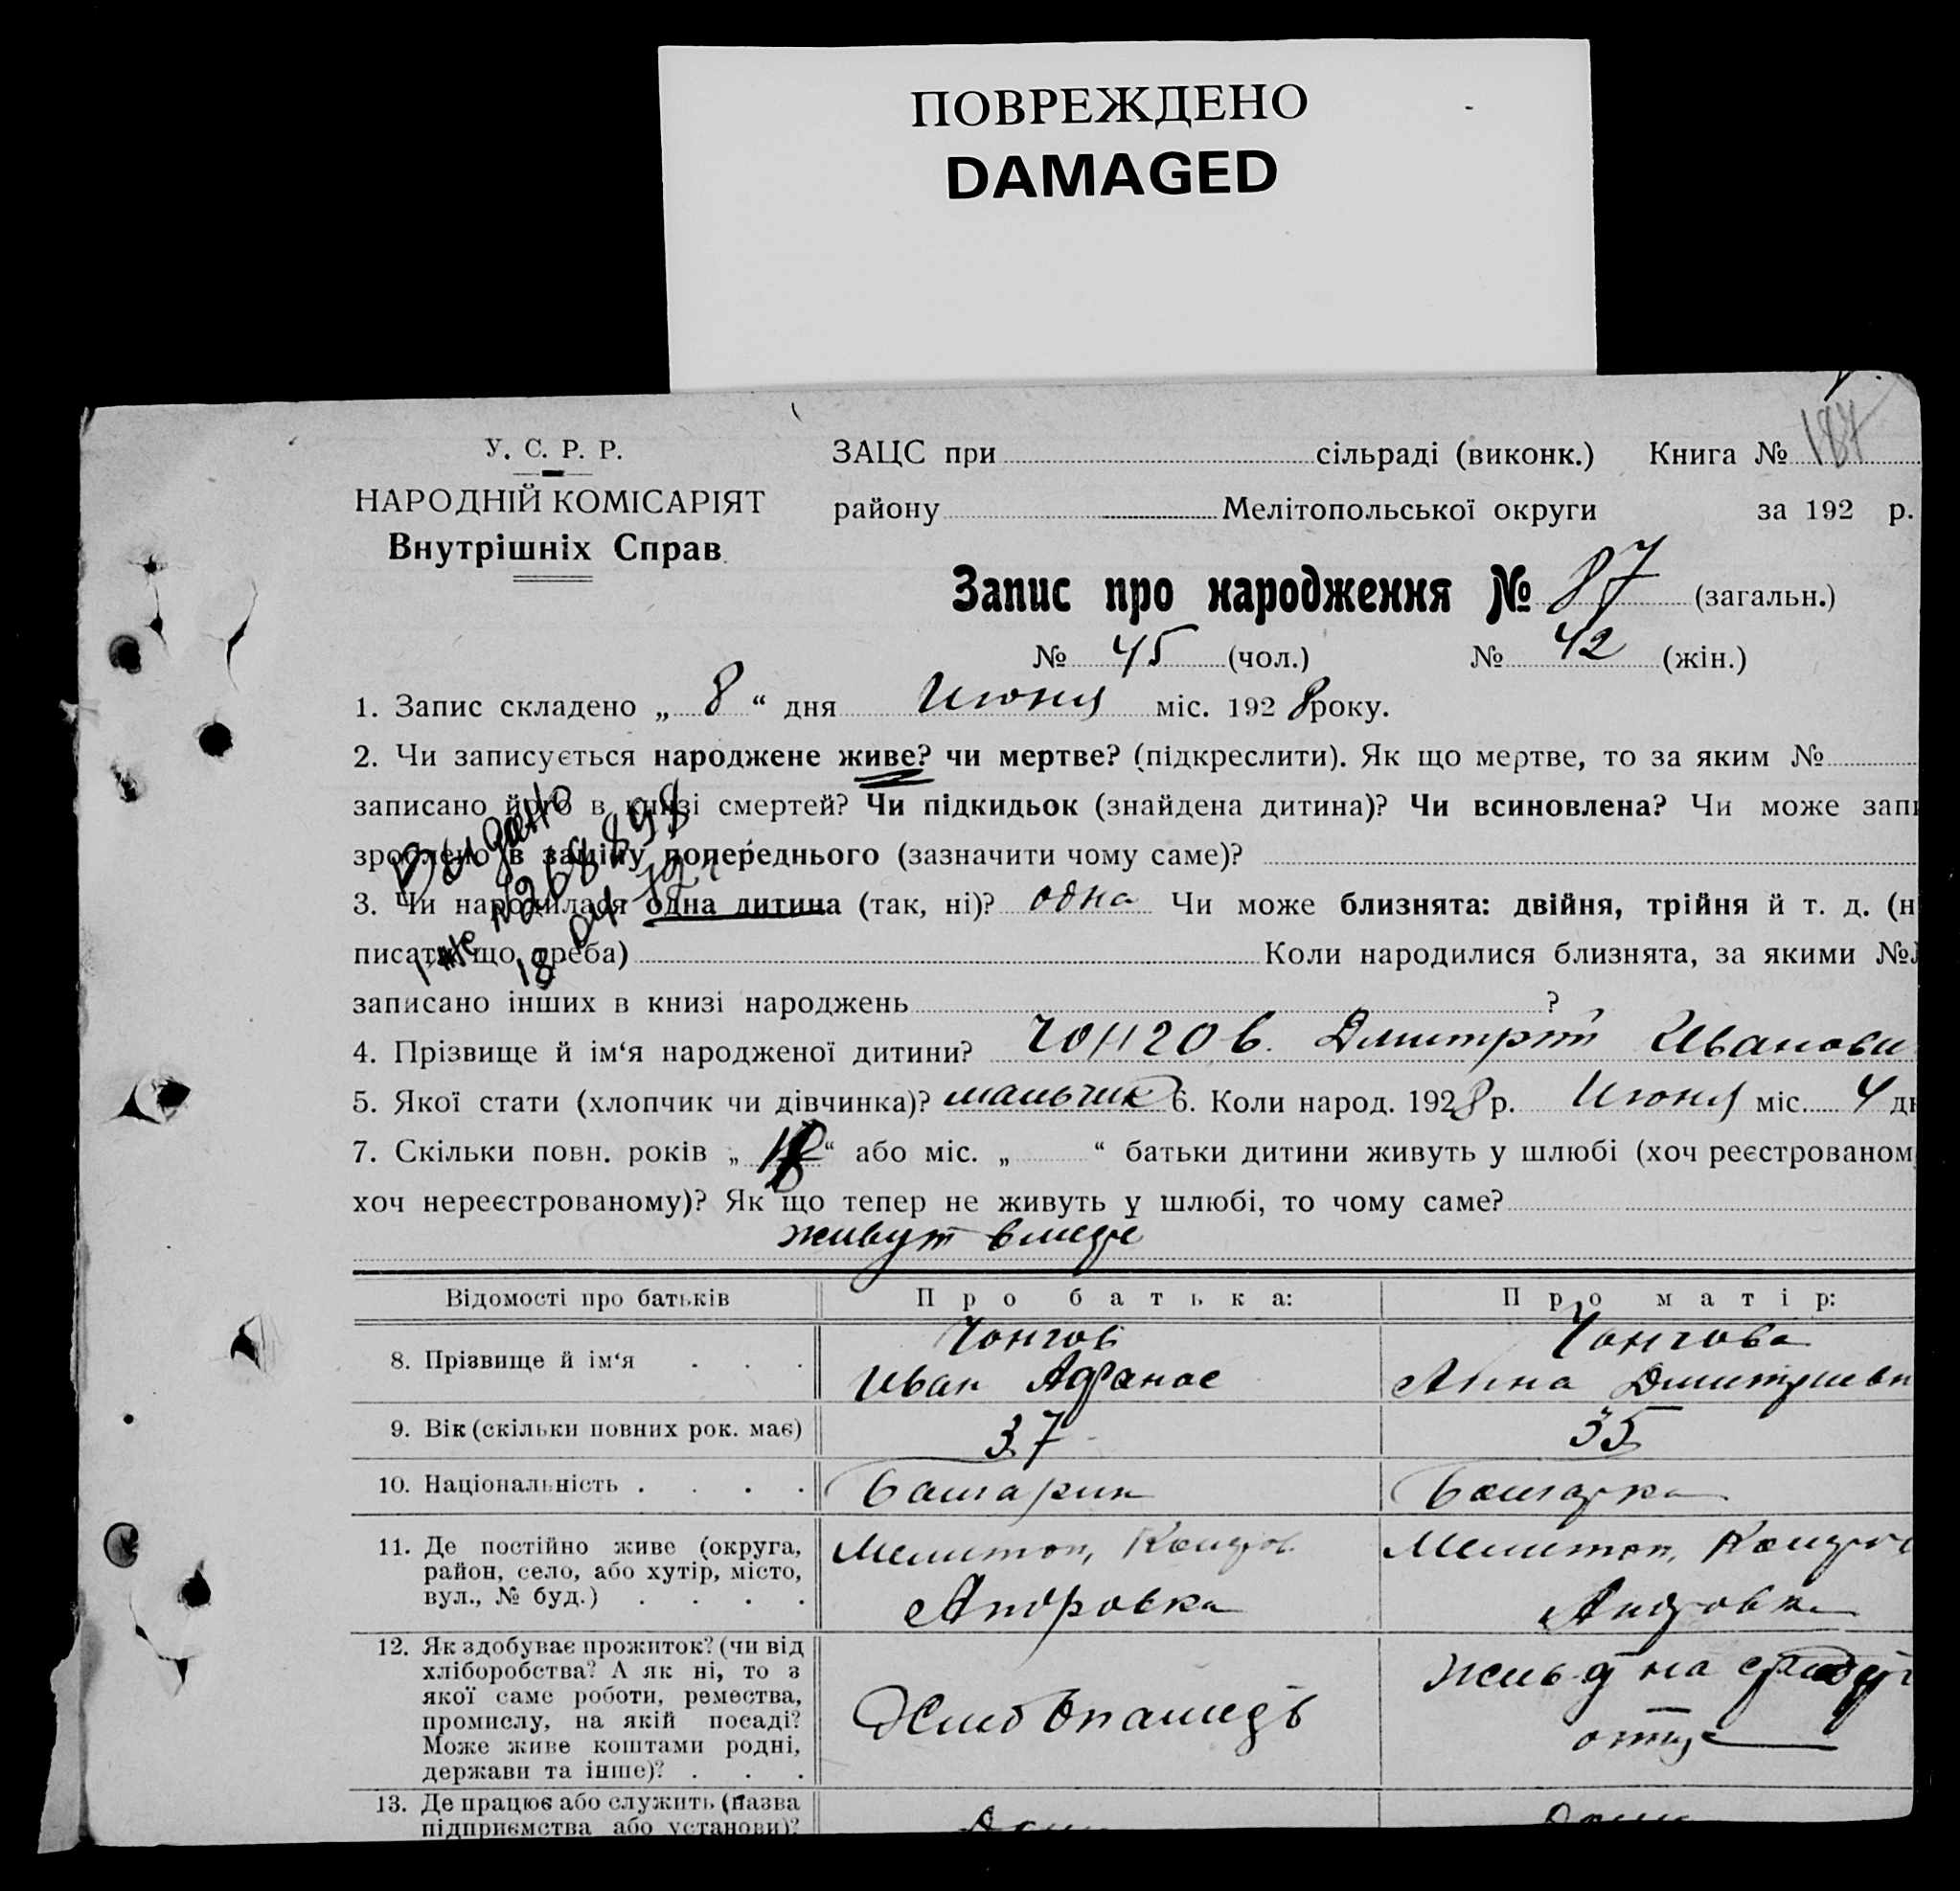 ПОВРЕЖДЕНО
DAMAGED
У. С. Р. Р.
НАРОДНІЙ КОМІСАРІЯТ
Внутрішніх Справ
ЗАЦС при сільраді (виконк.) Книга № 187
району Мелітопольської округи за 192 р.
Запис про народження № 87 (загальн.)
№ 45 (чол.) № 42 (жін.)
1. Запис складено „ 8 “ дня Июня міс. 192 8 року.
2. Чи записується народжене живе? чи мертве? (підкреслити). Як що мертве, то за яким №
записано його в книзі смертей? Чи підкидьок (знайдена дитина)? Чи всиновлена? Чи може запи
зроблено в заміну попереднього (зазначити чому саме)?
Видано
3. Чи народилася одна дитина (так, ні)? одна Чи може близнята: двійня, трійня й т. д. (н
писати що треба) Коли народилися близнята, за якими №
записано інших в книзі народжень ?
4. Прізвище й ім‘я народженої дитини? Чонгов. Дмитрий Иванови
5. Якої стати (хлопчик чи дівчинка)? мальчик 6. Коли народ. 192 8 р. Июня міс. 4 дн
7. Скільки повн. років „ “ або міс. „ “ батьки дитини живуть у шлюбі (хоч реєстрованом
хоч нереєстрованому)? Як що тепер не живуть у шлюбі, то чому саме?
живут вместе
Відомості про батьків Про батька: Про матір:
8. Прізвище й ім‘я Чонгов Чонгова
Иван Афанас Анна Дмитриевн
9. Вік (скільки повних рок. має) 37 35
10. Національність болгарин болгарка
11. Де постійно живе (округа, район, село, або хутір, місто, вул., № буд.) Мелитоп, Мелитоп,
Андровка Андровка
12. Як здобуває прожиток? (чи від
хліборобства? А як ні, то з
якої саме роботи, ремества,
промислу, на якій посаді?
Може живе коштами родні,
держави та інше)?
Хлебопашец
на
13. Де працює або служить (назва
підприємства або установи)?